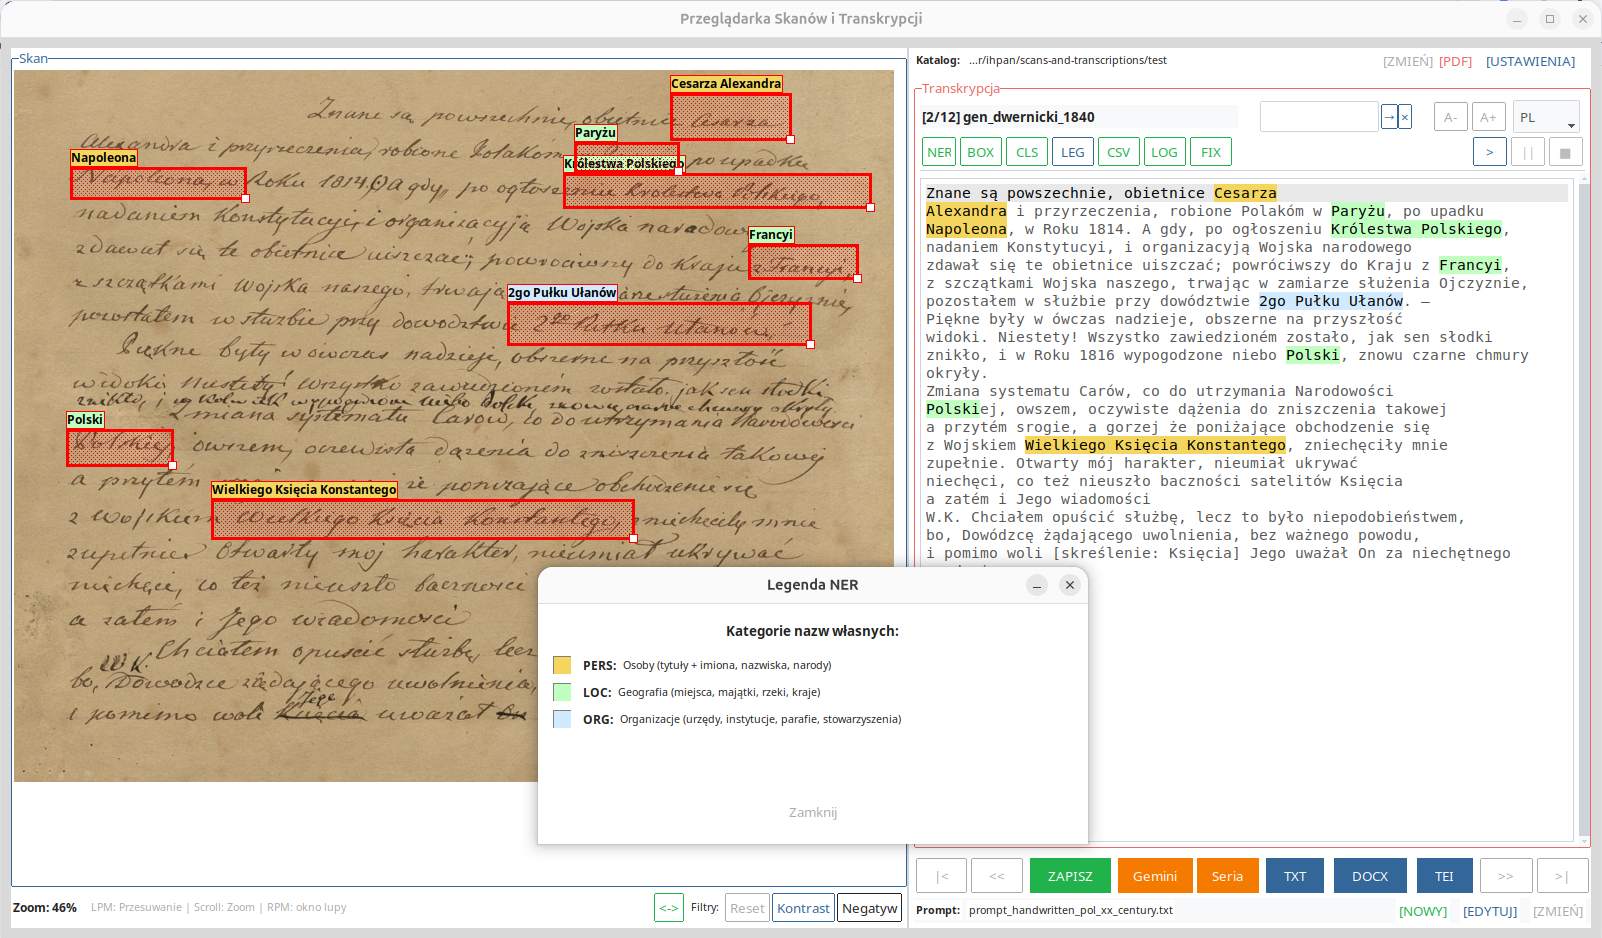 Przeglądarka Skanów i Transkrypcji
Skan
Cesarza Alexandra
Znane są powszechnie, obietnice Cesarza
Paryżu
Alexandra i przyrzeczenia, robione Polaków po upadku
Napoleona
Królestwa Polskiego
Napoleona, w Roku 1814. A gdy, po ogłoszeniu Królestwa Polskiego,
nadaniem Konstytucyi, i organizacyją Wojska narodow
Francyi
zdawał się te obietnice uiszczać; powróciwszy do Kraju z Francyi,
z szczątkami Wojska naszego, trwając służenia Ojczyznie,
2go Pułku Ułanów
pozostałem w służbie przy dowództwie 2go Pułku Ułanów,
Piękne były w ówczas nadzieje, obszerne na przyszłość
widoki. Niestety! Wszystko zawiedzioném zostało, jak sen słodki
znikło, i w Roku 1816 wypogodzone niebo Polski, znowu czarne chmury okryły.
Zmiana systematu Carów, co do utrzymania Narodowości
Polski
Polskiej, owszem, oczewista dążenia do zniszczenia takowej
a przytém że poniżające obchodzenie się
Wielkiego Księcia Konstantego
z Wojskiem Wielkiego Księcia Konstantego, zniechęciły mnie
zupełnie. Otwarty mój harakter, nieumiał ukrywać
niechęci, co też nieuszło baczności
a zatém i Jego wiadomości
W.K. Chciałem opuścić służbę, lecz
bo, Dowódzce żądającego uwolnienia,
Jego
i pomimo woli Księcia uważał On
Zoom: 46%
LPM: Przesuwanie | Scroll: Zoom | RPM: okno lupy
<->
Filtry:
Reset
Kontrast
Negatyw
Katalog: ...r/ihpan/scans-and-transcriptions/test
[ZMIEŃ] [PDF] [USTAWIENIA]
Transkrypcja
[2/12] gen_dwernicki_1840
→ × A- A+ PL
NER BOX CLS LEG CSV LOG FIX > || ■
Znane są powszechnie, obietnice Cesarza
Alexandra i przyrzeczenia, robione Polaków w Paryżu, po upadku
Napoleona, w Roku 1814. A gdy, po ogłoszeniu Królestwa Polskiego,
nadaniem Konstytucyi, i organizacyją Wojska narodowego
zdawał się te obietnice uiszczać; powróciwszy do Kraju z Francyi,
z szczątkami Wojska naszego, trwając w zamiarze służenia Ojczyznie,
pozostałem w służbie przy dowództwie 2go Pułku Ułanów. —
Piękne były w ówczas nadzieje, obszerne na przyszłość
widoki. Niestety! Wszystko zawiedzioném zostało, jak sen słodki
znikło, i w Roku 1816 wypogodzone niebo Polski, znowu czarne chmury
okryły.
Zmiana systematu Carów, co do utrzymania Narodowości
Polskiej, owszem, oczywiste dążenia do zniszczenia takowej
a przytém srogie, a gorzej że poniżające obchodzenie się
z Wojskiem Wielkiego Księcia Konstantego, zniechęciły mnie
zupełnie. Otwarty mój harakter, nieumiał ukrywać
niechęci, co też nieuszło baczności satelitów Księcia
a zatém i Jego wiadomości
W.K. Chciałem opuścić służbę, lecz to było niepodobieństwem,
bo, Dowódzcę żądającego uwolnienia, bez ważnego powodu,
i pomimo woli [skreślenie: Księcia] Jego uważał On za niechętnego
Legenda NER
Kategorie nazw własnych:
PERS: Osoby (tytuły + imiona, nazwiska, narody)
LOC: Geografia (miejsca, majątki, rzeki, kraje)
ORG: Organizacje (urzędy, instytucje, parafie, stowarzyszenia)
Zamknij
|< << ZAPISZ Gemini Seria TXT DOCX TEI >> >|
Prompt: prompt_handwritten_pol_xx_century.txt
[NOWY] [EDYTUJ] [ZMIEŃ]